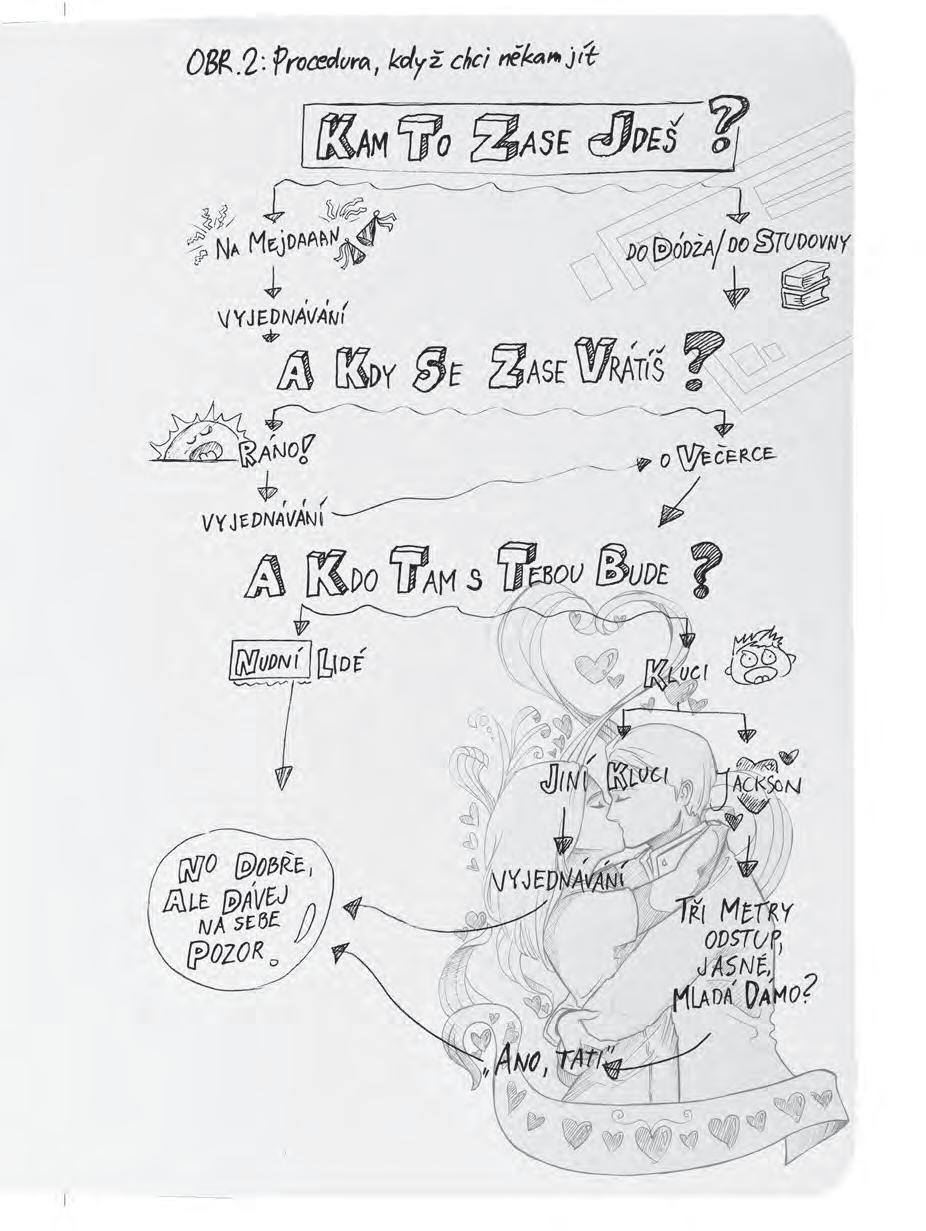 OBR.2: Procedura, když chci někam jít
KAM TO ZASE JDEŠ?
NA MEJDAAAN
DO DÓDŽA/DO STUDOVNY
VYJEDNÁVÁNÍ
A KDY SE ZASE VRÁTÍŠ?
RÁNO!
O VEČERCE
VYJEDNÁVÁNÍ
A KDO TAM S TEBOU BUDE?
NUDNÍ LIDÉ
KLUCI
JINÍ KLUCI
JACKSON
VYJEDNÁVÁNÍ
TŘI METRY
ODSTUP,
JASNÉ,
MLADÁ DÁMO?
NO DOBŘE,
ALE DÁVEJ
NA SEBE
POZOR.
„ANO, TATI"